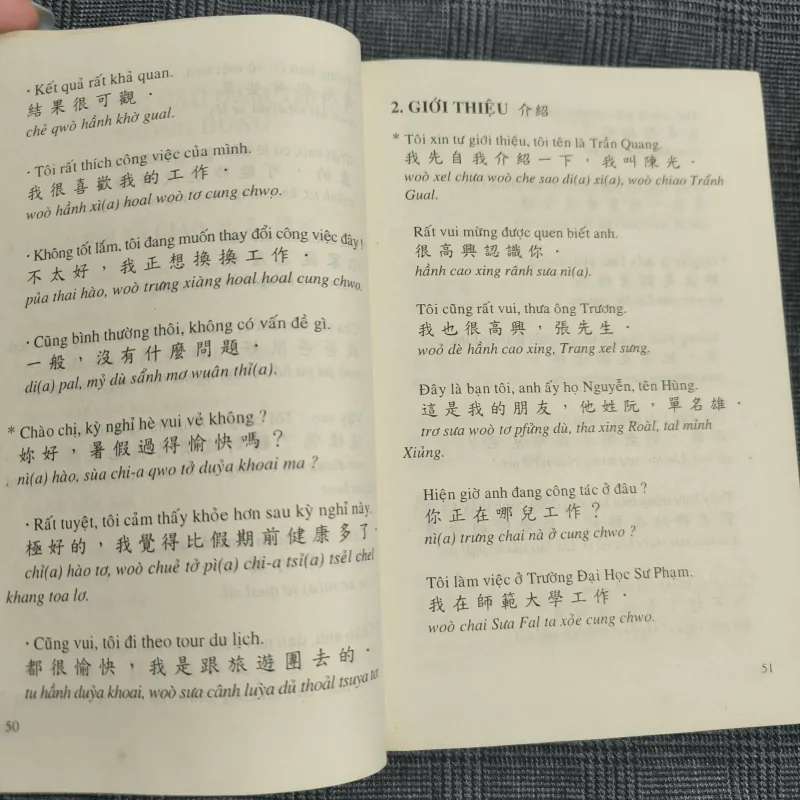 · Kết quả rất khả quan.
結果很可觀．
chẻ qwò hầnh khờ gual.
· Tôi rất thích công việc của mình.
我很喜歡我的工作．
woò hầnh xì(a) hoal woò tơ cung chwọ.
· Không tốt lắm. tôi đang muốn thay đổi công việc đây!
不太好，我正想換換工作．
pủa thai hào, woò trưng xiàng hoal hoal cung chwọ.
· Cũng bình thường thôi, không có vấn đề gì.
一般，沒有什麼問題．
di(a) pal, mỷ dù sẩnh mơ wuân thỉ(a).
* Chào chị, kỳ nghỉ hè vui vẻ không ?
妳好，暑假過得愉快嗎？
nì(a) hào, sùa chi-a qwo tở duỷa khoai ma ?
· Rất tuyệt, tôi cảm thấy khỏe hơn sau kỳ nghỉ này.
極好的，我覺得比假期前健康多了．
chỉ(a) hào tơ, woò chuẻ tở pì(a) chi-a tsỉ(a) tsẻl chel
khang toa lơ.
· Cũng vui, tôi đi theo tour du lịch.
都很愉快，我是跟旅遊團去的．
tu hầnh duỷa khoai, woò sưa cânh luỳa dủ thoảl tsuya tơ.
50
2. GIỚI THIỆU 介紹
* Tôi xin tự giới thiệu, tôi tên là Trần Quang.
我先自我介紹一下，我叫陳光．
woò xel chưa woò che sao di(a) xi(a), woò chiao Trẩnh
Gual.
Rất vui mừng được quen biết anh.
很高興認識你．
hầnh cao xing rânh sưa nì(a).
Tôi cũng rất vui, thưa ông Trương.
我也很高興，張先生．
woỏ dè hầnh cao xing, Trang xel sưng.
Đây là bạn tôi, anh ấy họ Nguyễn, tên Hùng.
這是我的朋友，他姓阮，單名雄．
trơ sưa woò tơ pfửng dù, tha xing Roàl, tal mỉnh
Xiủng.
Hiện giờ anh đang công tác ở đâu ?
你正在哪兒工作？
nì(a) trưng chai nà ở cung chwo ?
Tôi làm việc ở Trường Đại Học Sư Phạm.
我在師範大學工作．
woò chai Sưa Fal ta xỏe cung chwọ.
51